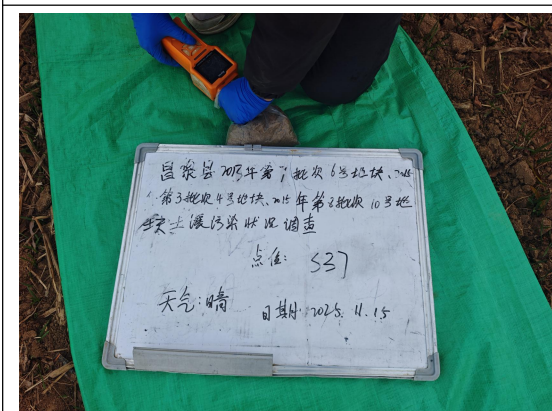 昌黎县2015年第1批次6号地块、2015
年第3批次4号地块、2015年第2批次10号地
块土壤污染状况调查
点位: S37
天气:晴 日期:2025.11.15